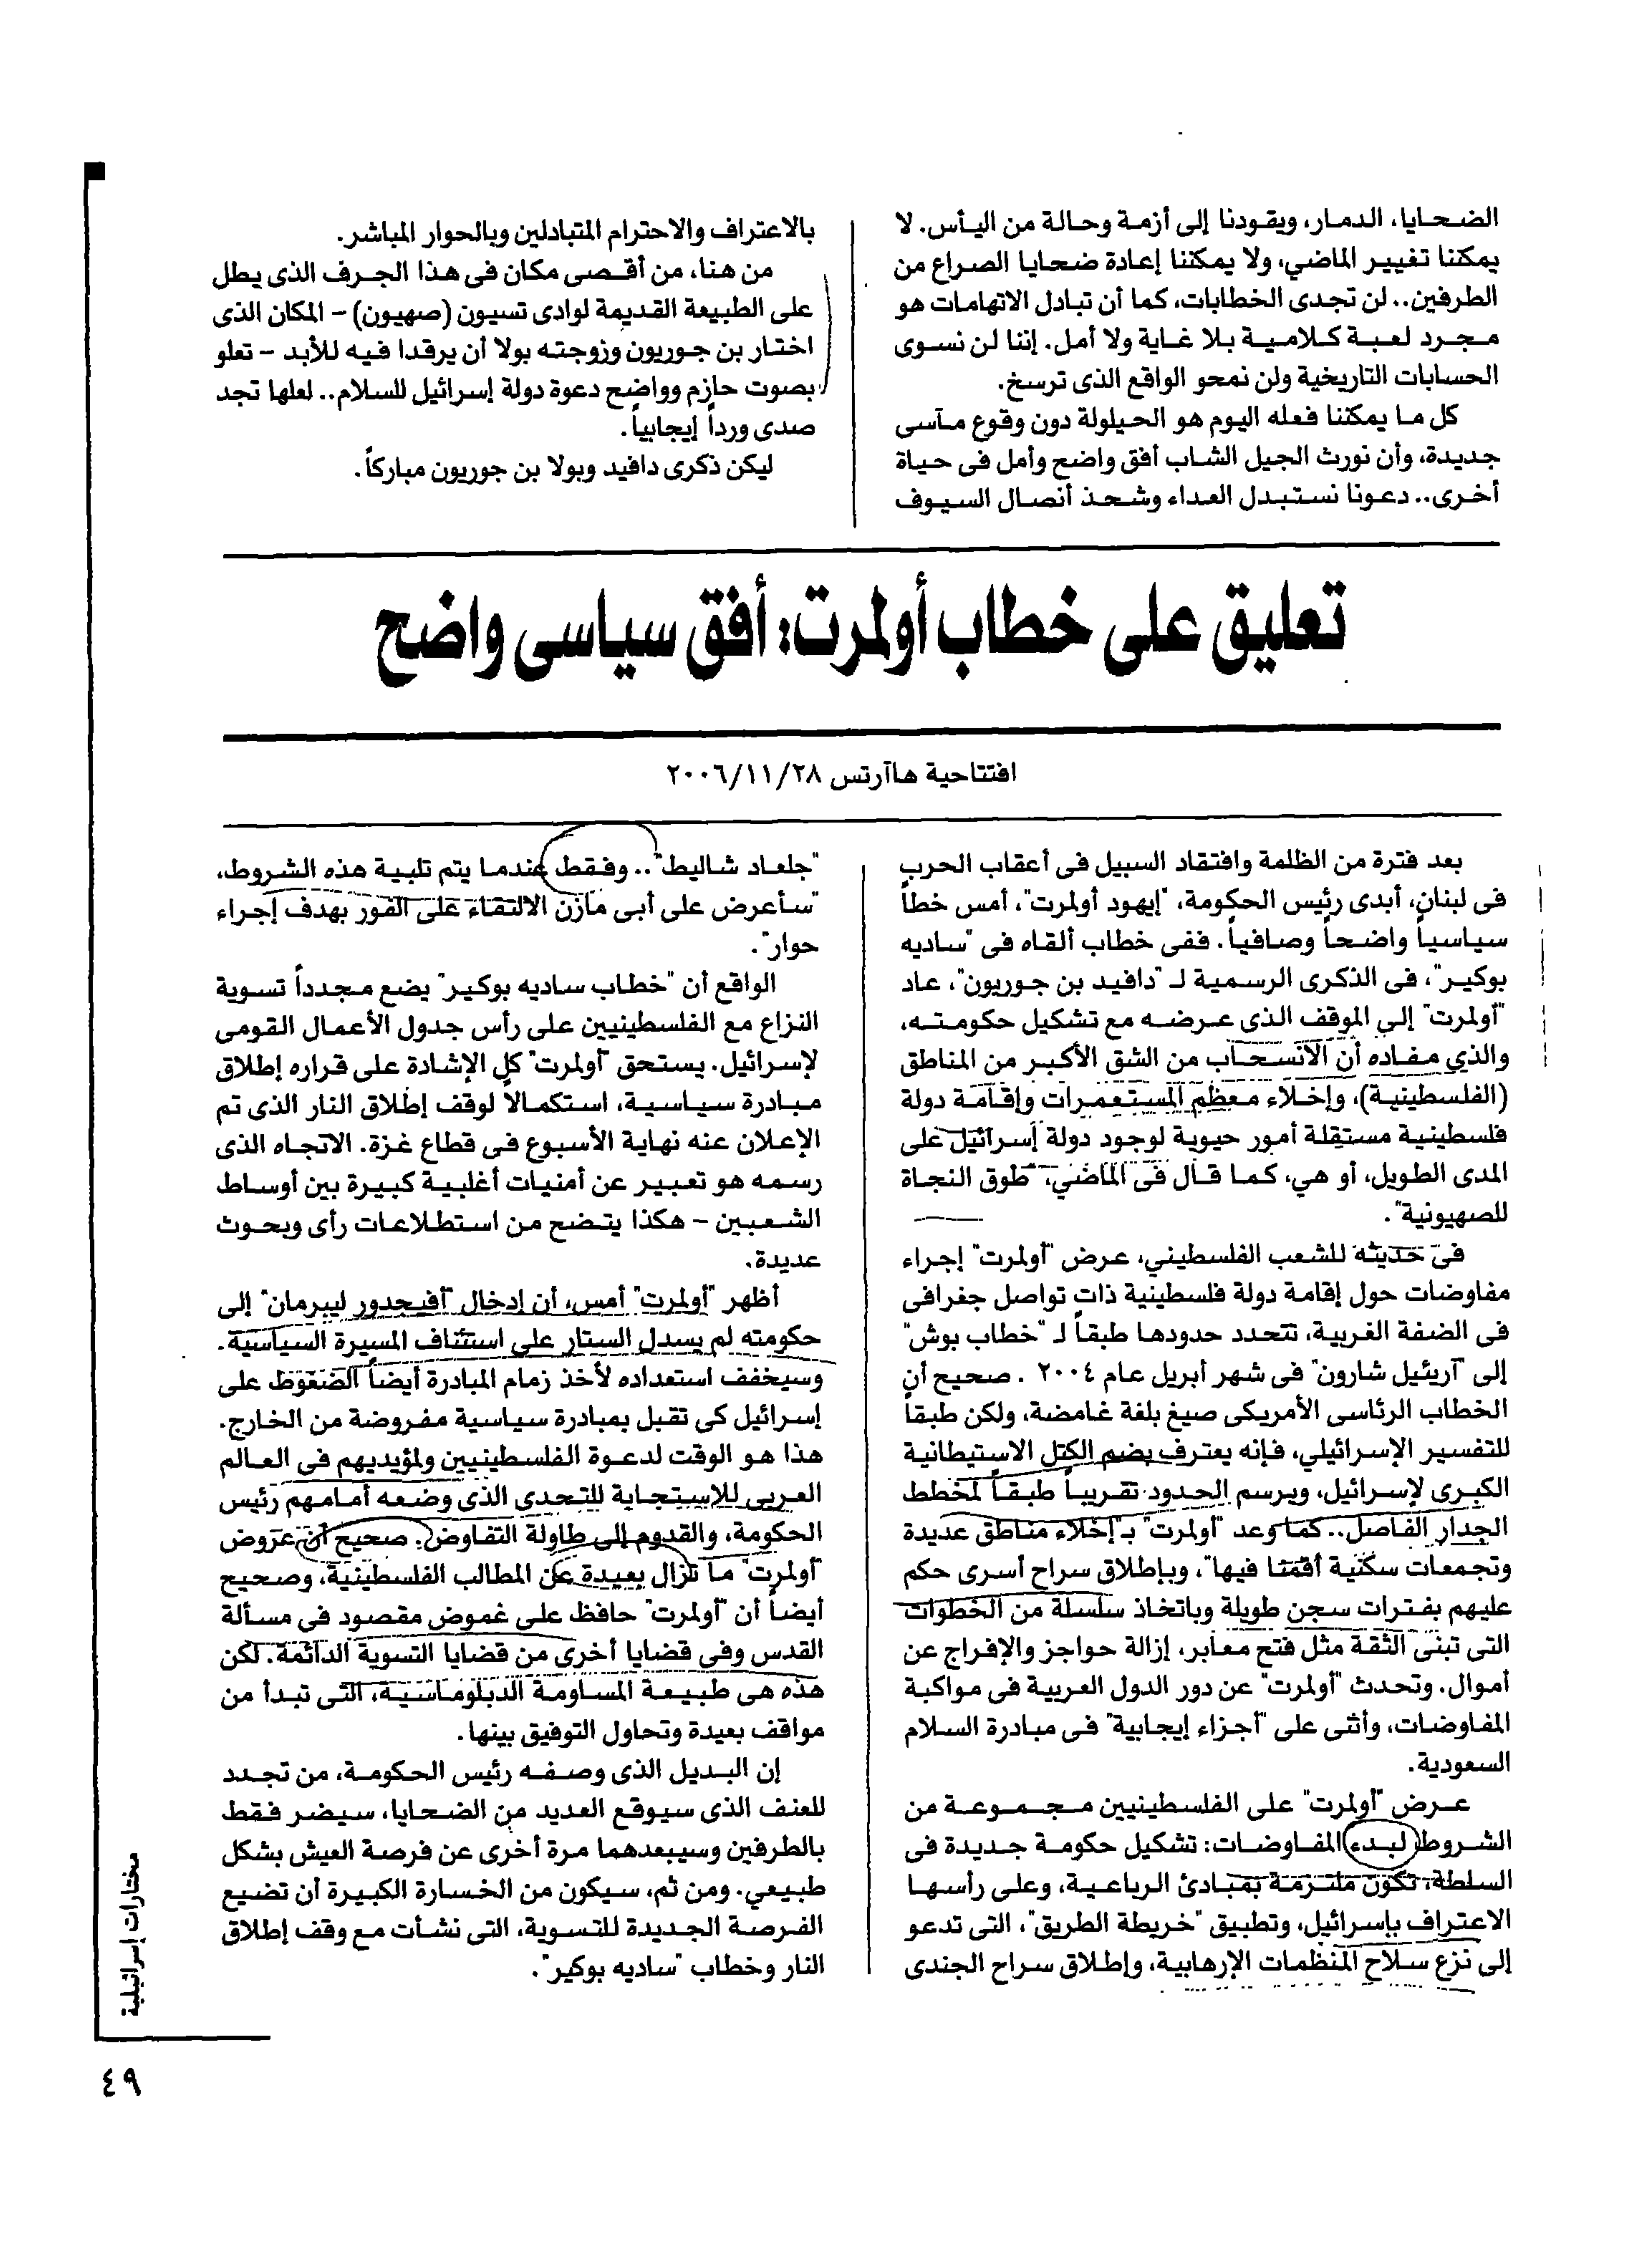 الضحايا، الدمار، ويقودنا إلى أزمة وحالة من اليأس. لا
يمكننا تغيير الماضي، ولا يمكننا إعادة ضحايا الصراع من
الطرفين.. لن تجدى الخطابات، كما أن تبادل الاتهامات هو
مجرد لعبة كلامية بلا غاية ولا أمل. إننا لن نسوى
الحسابات التاريخية ولن نمحو الواقع الذى ترسخ.
كل ما يمكننا فعله اليوم هو الحيلولة دون وقوع مآسى
جديدة، وأن نورث الجيل الشاب أفق واضح وأمل فى حياة
أخرى.. دعونا نستبدل العداء وشحذ أنصال السيوف
بالاعتراف والاحترام المتبادلين وبالحوار المباشر.
من هنا، من أقصى مكان فى هذا الجرف الذى يطل
على الطبيعة القديمة لوادى تسيون (صهيون) - المكان الذى
اختار بن جوريون وزوجته بولا أن يرقدا فيه للأبد - تعلو
بصوت حازم وواضح دعوة دولة إسرائيل للسلام.. لعلها تجد
صدى ورداً إيجابياً.
ليكن ذكرى دافيد وبولا بن جوريون مباركاً.
تعليق على خطاب أولمرت: أفق سياسى واضح
افتتاحية هاآرتس ٢٠٠٦/١١/٢٨
بعد فترة من الظلمة وافتقاد السبيل فى أعقاب الحرب
فى لبنان، أبدى رئيس الحكومة، "إيهود أولمرت"، أمس خطاً
سياسياً واضحاً وصافياً. ففى خطاب ألقاه فى "ساديه
بوكير"، فى الذكرى الرسمية لـ "دافيد بن جوريون"، عاد
"أولمرت" إلى الموقف الذى عرضه مع تشكيل حكومته،
والذي مفاده أن الانسحاب من الشق الأكبر من المناطق
(الفلسطينية)، وإخلاء معظم المستعمرات وإقامة دولة
فلسطينية مستقلة أمور حيوية لوجود دولة إسرائيل على
المدى الطويل، أو هي، كما قال فى الماضي، "طوق النجاة
للصهيونية".
فى حديثه للشعب الفلسطيني، عرض "أولمرت" إجراء
مفاوضات حول إقامة دولة فلسطينية ذات تواصل جغرافى
فى الضفة الغربية، تتحدد حدودها طبقاً لـ "خطاب بوش"
إلى "آريئيل شارون" فى شهر أبريل عام ٢٠٠٤ . صحيح أن
الخطاب الرئاسى الأمريكى صيغ بلغة غامضة، ولكن طبقاً
للتفسير الإسرائيلي، فإنه يعترف بضم الكتل الاستيطانية
الكبرى لإسرائيل، ويرسم الحدود تقريباً طبقاً لمخطط
الجدار الفاصل.. كما وعد "أولمرت" بـ"إخلاء مناطق عديدة
وتجمعات سكنية أقمنا فيها"، وبإطلاق سراح أسرى حكم
عليهم بفترات سجن طويلة وباتخاذ سلسلة من الخطوات
التى تبنى الثقة مثل فتح معابر، إزالة حواجز والإفراج عن
أموال. وتحدث "أولمرت" عن دور الدول العربية فى مواكبة
المفاوضات، وأثنى على "أجزاء إيجابية" فى مبادرة السلام
السعودية.
عرض "أولمرت" على الفلسطينيين مجموعة من
الشروط لبدء المفاوضات: تشكيل حكومة جديدة فى
السلطة، تكون ملتزمة بمبادئ الرباعية، وعلى رأسها
الاعتراف بإسرائيل، وتطبيق "خريطة الطريق"، التى تدعو
إلى نزع سلاح المنظمات الإرهابية، وإطلاق سراح الجندى
"جلعاد شاليط".. وفقط عندما يتم تلبية هذه الشروط،
"سأعرض على أبى مازن الالتقاء على الفور بهدف إجراء
حوار".
الواقع أن "خطاب ساديه بوكير" يضع مجدداً تسوية
النزاع مع الفلسطينيين على رأس جدول الأعمال القومى
لإسرائيل. يستحق "أولمرت" كل الإشادة على قراره إطلاق
مبادرة سياسية، استكمالاً لوقف إطلاق النار الذى تم
الإعلان عنه نهاية الأسبوع فى قطاع غزة. الاتجاه الذى
رسمه هو تعبير عن أمنيات أغلبية كبيرة بين أوساط
الشعبين - هكذا يتضح من استطلاعات رأى وبحوث
عديدة.
أظهر "أولمرت" أمس، أن إدخال "أفيجدور ليبرمان" إلى
حكومته لم يسدل الستار على استئناف المسيرة السياسية.
وسيخفف استعداده لأخذ زمام المبادرة أيضاً الضغوط على
إسرائيل كى تقبل بمبادرة سياسية مفروضة من الخارج.
هذا هو الوقت لدعوة الفلسطينيين ولمؤيديهم فى العالم
العربى للاستجابة للتحدى الذى وضعه أمامهم رئيس
الحكومة، والقدوم إلى طاولة التفاوض. صحيح أن عروض
"أولمرت" ما تزال بعيدة عن المطالب الفلسطينية، وصحيح
أيضاً أن "أولمرت" حافظ على غموض مقصود فى مسألة
القدس وفى قضايا أخرى من قضايا التسوية الدائمة. لكن
هذه هى طبيعة المساومة الدبلوماسية، التى تبدأ من
مواقف بعيدة وتحاول التوفيق بينها.
إن البديل الذى وصفه رئيس الحكومة، من تجدد
للعنف الذى سيوقع العديد من الضحايا، سيضر فقط
بالطرفين وسيبعدهما مرة أخرى عن فرصة العيش بشكل
طبيعي. ومن ثم، سيكون من الخسارة الكبيرة أن تضيع
الفرصة الجديدة للتسوية، التى نشأت مع وقف إطلاق
النار وخطاب "ساديه بوكير".
مختارات إسرائيلية
٤٩